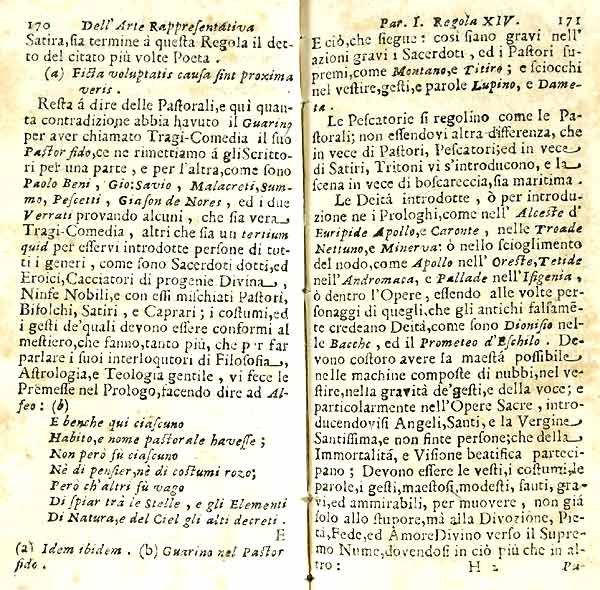 170 Dell'Arte Rappresentativa
Satira, sia termine à questa Regola il det-
to del citato più volte Poeta.
(a) Ficta voluptatis causa sint proxima
veris.
Resta á dire delle Pastorali, e quì quan-
ta contradizione abbia havuto il Guarino
per aver chiamato Tragi-Comedia il suo
Pastor fido, ce ne rimettiamo á gli Scritto-
ri per una parte, e per l'altra, come sono
Paolo Beni, Gio: Savio, Malacreti, Sum-
mo, Pescetti, Giason de Nores, ed i due
Verrati provando alcuni, che sia vera
Tragi-Comedia, altri che sia un tertium
quid per esservi introdotte persone di tut-
ti i generi, come sono Sacerdoti dotti, ed
Eroici, Cacciatori di progenie Divina,
Ninfe Nobili, e con essi mischiati Pastori,
Bifolchi, Satiri, e Caprari; i costumi, ed
i gesti de'quali devono essere conformi al
mestiero, che fanno, tanto più, che per far
parlare i suoi interloqutori di Filosofia,
Astrologia, e Teologia gentile, vi fece le
Premesse nel Prologo, facendo dire ad Al-
feo: (b)
E benche qui ciascuno
Habito, e nome pastorale havesse;
Non però fù ciascuno
Nè di pensier, nè di costumi rozo;
Però ch'altri fù vago
Di spiar trà le Stelle, e gli Elementi
Di Natura, e del Ciel gli alti decreti.
E
(a) Idem ibidem. (b) Guarino nel Pastor
fido.
Par. I. Regola XIV. 171
E ciò, che siegue: così siano gravi nell'
azioni gravi i Sacerdoti, ed i Pastori su-
premi, come Montano, e Titiro; e sciocchi
nel vestire, gesti, e parole Lupino, e Dame-
ta.
Le Pescatorie si regolino come le Pa-
storali; non essendovi altra differenza, che
in vece di Pastori, Pescatori; ed in vece
di Satiri, Tritoni vi s'introducono, e la
scena in vece di boscareccia, sia maritima.
Le Deità introdotte, ò per introdu-
zione ne i Prologhi, come nell' Alceste d'
Euripide Apollo, e Caronte, nelle Troade
Nettuno, e Minerva: ò nello scioglimento
del nodo, come Apollo nell' Oreste, Tetide
nell'Andromaca, e Pallade nell'Ifigenia,
ò dentro l'Opere, essendo alle volte per-
sonaggi di quegli, che gli antichi falsamẽ-
te credeano Deità, come sono Dionisio nel-
le Bacche, ed il Prometeo d'Eschilo. De-
vono costoro avere la maestà possibile
nelle machine composte di nubbi, nel ve-
stire, nella gravità de'gesti, e della voce; e
particolarmente nell'Opere Sacre, intro-
ducendovisi Angeli, Santi, e la Vergine
Santissima, e non finte persone; che della
Immortalitá, e Visione beatifica parteci-
pano; Devono essere le vesti, i costumi, le
parole, i gesti, maestosi, modesti, santi, gra-
vi, ed ammirabili, per muovere, non giá
solo allo stupore, mà alla Divozione, Pie-
tà, Fede, ed Amore Divino verso il Supre-
mo Nume, dovendosi in ciò più che in al-
tro:
H 2 Pa-